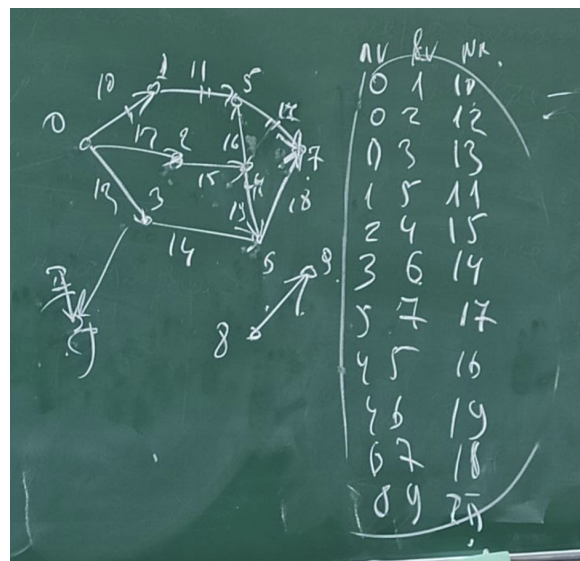 10
1
11
5
17
0
12
2
16
7
15
4
13
3
19
18
14
6
9
8
AV EV NR.
0 1 10
0 2 12
0 3 13
1 5 11
2 4 15
3 6 14
5 7 17
4 5 16
4 6 19
6 7 18
8 9